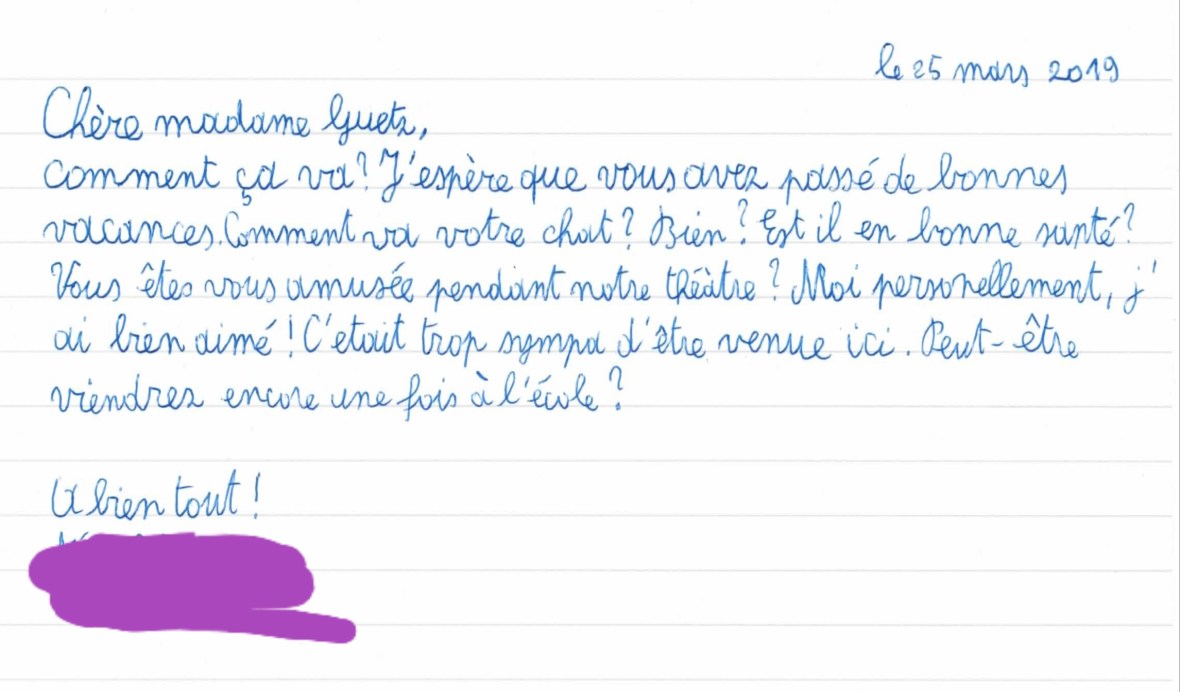 le 25 mars 2019
Chère madame Guetz,
comment ça va? J'espère que vous avez passé de bonnes
vacances. Comment va votre chat? Bien? Est il en bonne santé?
Vous êtes vous amusée pendant notre théâtre? Moi personellement, j'
ai bien aimé! C'etait trop sympa d'être venue ici. Peut-être
viendrez encore une fois à l'école?
A bien tout!